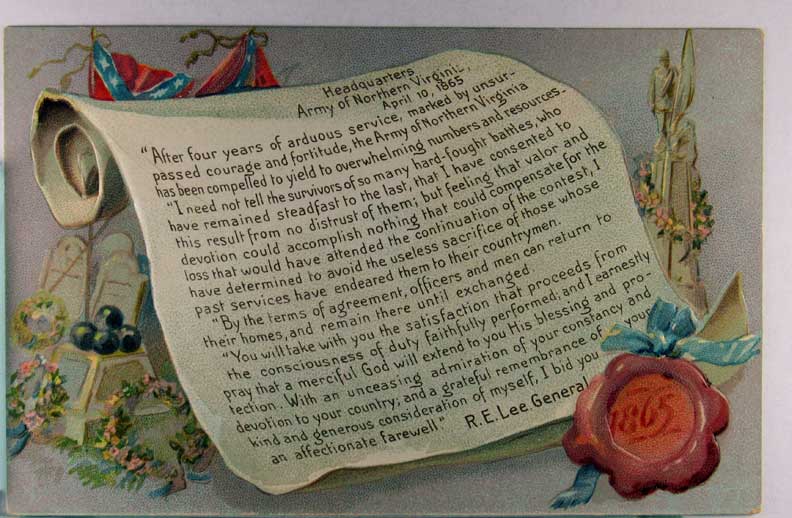 Headquarters,
Army of Northern Virginia,
April 10, 1865
"After four years of arduous service, marked by unsur-
passed courage and fortitude, the Army of Northern Virginia
has been compelled to yield to overwhelming numbers and resources.
"I need not tell the survivors of so many hard-fought battles, who
have remained steadfast to the last, that I have consented to
this result from no distrust of them; but feeling that valor and
devotion could accomplish nothing that could compensate for the
loss that would have attended the continuation of the contest, I
have determined to avoid the useless sacrifice of those whose
past services have endeared them to their countrymen.
"By the terms of agreement, officers and men can return to
their homes, and remain there until exchanged.
"You will take with you the satisfaction that proceeds from
the consciousness of duty faithfully performed; and I earnestly
pray that a merciful God will extend to you His blessing and pro-
tection. With an unceasing admiration of your constancy and
devotion to your country; and a grateful remembrance of your
kind and generous consideration of myself, I bid you
an affectionate farewell" R.E. Lee. General
1865